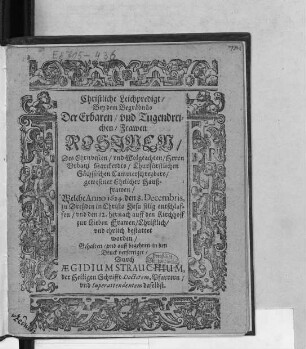 Christliche Leichpredigt/
Bey dem Begräbnis
Der Erbaren/ vnd Tugendrei-
chen/ Frawen
ROSINEN/
Des Ehrnvesten/ vnd Wolgeachten/ Herrn
Churfürstlichen
Sächsischen Cammerschreibers/
gewesenen Ehelicher Hauß-
frawen/
Welche Anno 1609. den 8. Decembris,
in Dresden in Christo Jesu selig entschlaf-
fen/ vnd den 12. hernach auff den Kirchhoff
zur Lieben Frawen/ Christlich/
vnd ehrlich bestattet
worden/
Gehalten/ vnd auff begehren in den
Druck verfertiget/
Durch
ÆGIDIUM STRAUCHIUM,
der Heiligen Schrifft Doctorem, Pfarrern/
vnd Superattendentem daselbst.